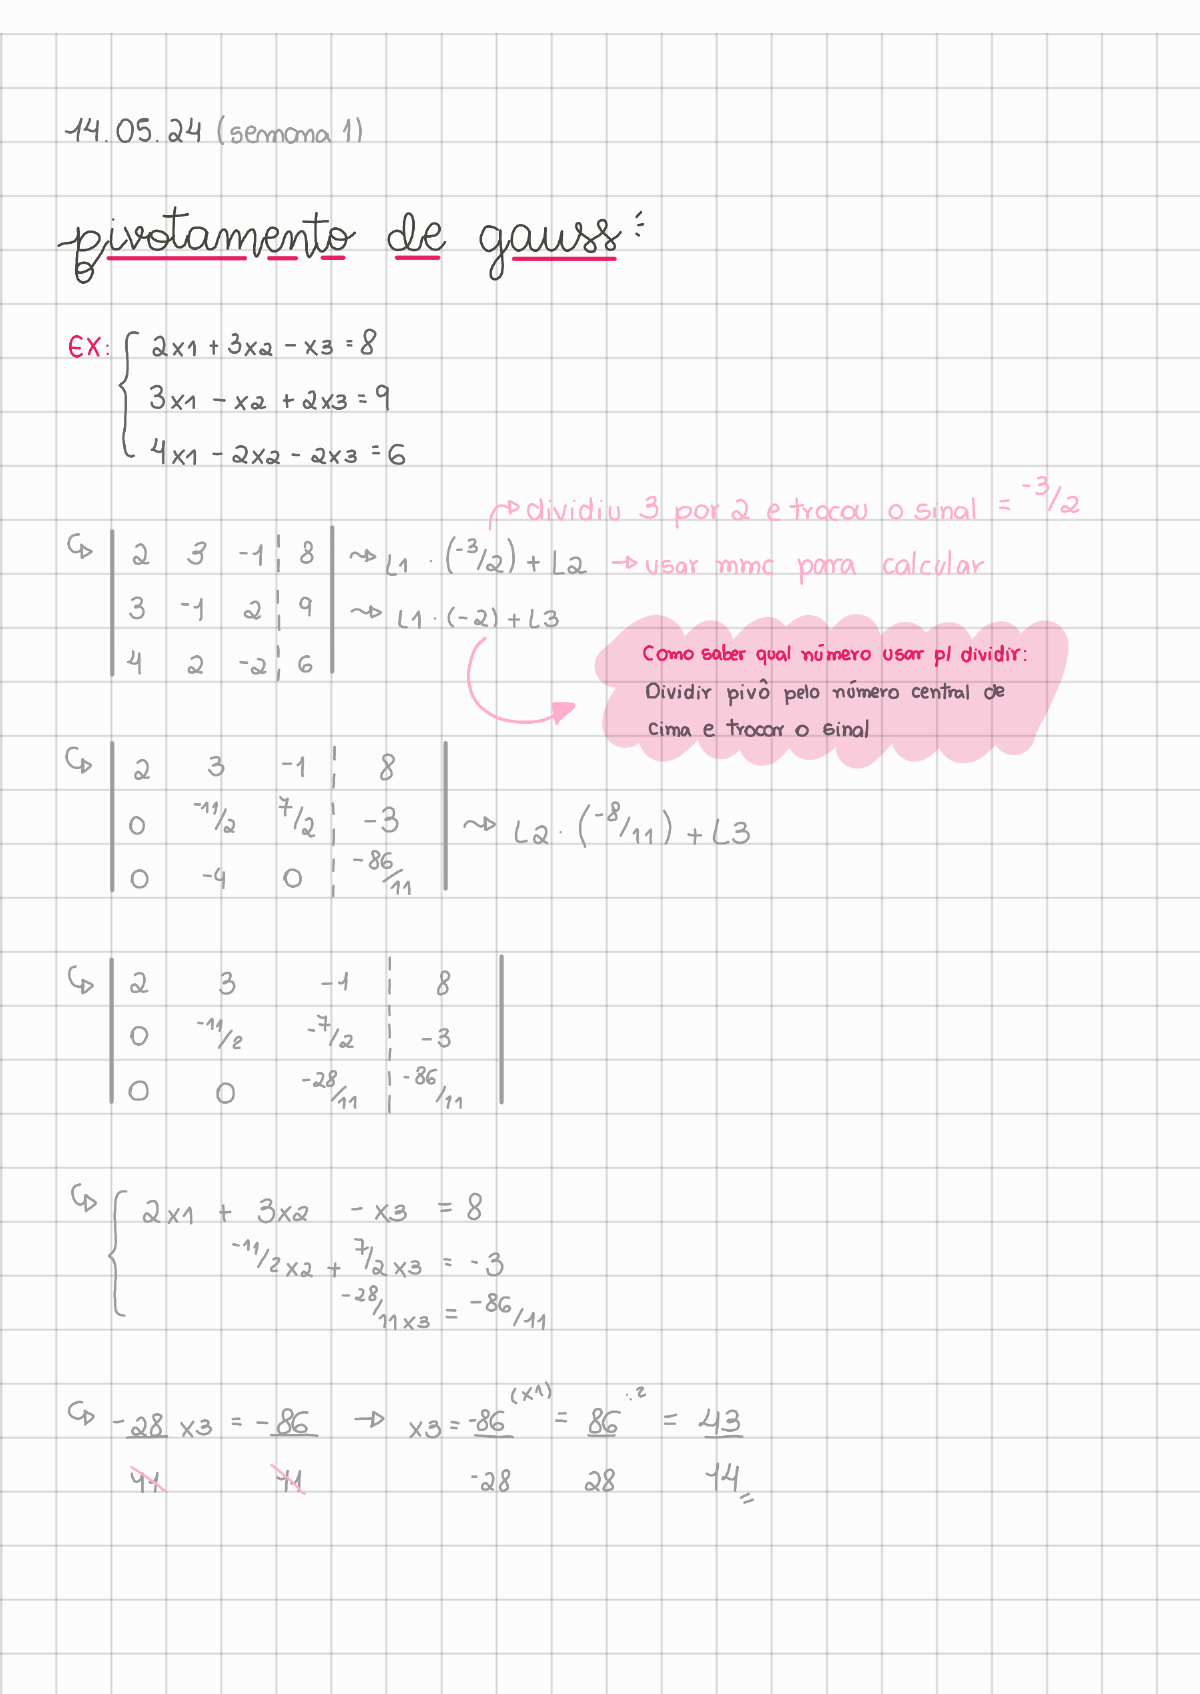 14.05.24 (semana 1)
pivotamento de gauss:
EX: { 2x1 + 3x2 - x3 = 8
3x1 - x2 + 2x3 = 9
4x1 - 2x2 - 2x3 = 6
dividiu 3 por 2 e trocou o sinal = -3/2
2 3 -1 8 L1 · (-3/2) + L2 → usar mmc para calcular
3 -1 2 9 L1 · (-2) + L3
4 2 -2 6
Como saber qual número usar p/ dividir:
Dividir pivô pelo número central de
cima e trocar o sinal
2 3 -1 8
0 -11/2 7/2 -3 L2 · (-8/11) + L3
0 -4 0 -86/11
2 3 -1 8
0 -11/2 -7/2 -3
0 0 -28/11 -86/11
2x1 + 3x2 - x3 = 8
-11/2 x2 + 7/2 x3 = -3
-28/11 x3 = -86/11
-28/11 x3 = -86/11 → x3 = -86/-28 (x1) = 86/28 :2 = 43/14